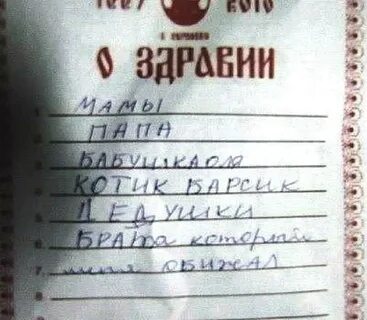 О ЗДРАВИИ
1 МАМЫ
2 ПАПА
3 БАБУШКАОЛЯ
4 КОТИК БАРСИК
5 ДЕДУШКИ
6 БРАТА который
7 меня ОБИЖАЛ
8